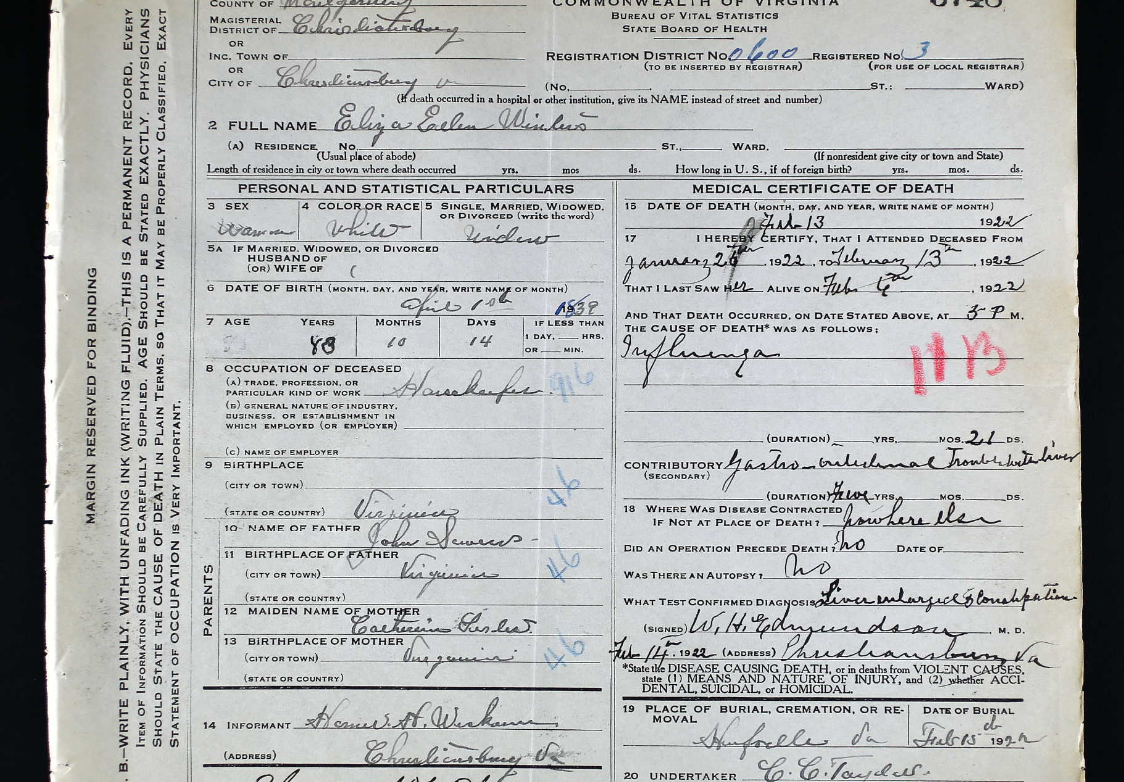 COUNTY OF Montgomery
COMMONWEALTH OF VIRGINIA
BUREAU OF VITAL STATISTICS
STATE BOARD OF HEALTH
MAGISTERIAL
DISTRICT OF Christiansburg
OR
INC. TOWN OF
OR
CITY OF Christiansburg Va
REGISTRATION DISTRICT No 0600 REGISTERED No. 3
(TO BE INSERTED BY REGISTRAR) (FOR USE OF LOCAL REGISTRAR)
(No. ST.: WARD)
(If death occurred in a hospital or other institution, give its NAME instead of street and number)
2 FULL NAME Eliza Ellen
(A) RESIDENCE No. ST., WARD.
(Usual place of abode) (If nonresident give city or town and State)
Length of residence in city or town where death occurred yrs. mos ds. How long in U. S., if of foreign birth? yrs. mos. ds.
PERSONAL AND STATISTICAL PARTICULARS
3 SEX 4 COLOR OR RACE 5 SINGLE, MARRIED, WIDOWED, OR DIVORCED (write the word)
Woman White Widow
5A IF MARRIED, WIDOWED, OR DIVORCED
HUSBAND OF
(OR) WIFE OF
6 DATE OF BIRTH (MONTH, DAY, AND YEAR, WRITE NAME OF MONTH)
April
7 AGE YEARS MONTHS DAYS IF LESS THAN
1 DAY, HRS.
OR MIN.
10 14
8 OCCUPATION OF DECEASED
(A) TRADE, PROFESSION, OR
PARTICULAR KIND OF WORK Housekeeper 916
(B) GENERAL NATURE OF INDUSTRY,
BUSINESS, OR ESTABLISHMENT IN
WHICH EMPLOYED (OR EMPLOYER)
(C) NAME OF EMPLOYER
9 BIRTHPLACE
(CITY OR TOWN) 46
(STATE OR COUNTRY) Virginia
PARENTS
10 NAME OF FATHER
John
11 BIRTHPLACE OF FATHER
(CITY OR TOWN) Virginia 46
(STATE OR COUNTRY)
12 MAIDEN NAME OF MOTHER
13 BIRTHPLACE OF MOTHER
(CITY OR TOWN) Virginia 46
(STATE OR COUNTRY)
14 INFORMANT
(ADDRESS) Christiansburg Va
MEDICAL CERTIFICATE OF DEATH
15 DATE OF DEATH (MONTH, DAY, AND YEAR, WRITE NAME OF MONTH)
Feb 13 1922
17 I HEREBY CERTIFY, THAT I ATTENDED DECEASED FROM
January 26 1922, TO February 13th 1922
THAT I LAST SAW Her ALIVE ON Feb , 1922
AND THAT DEATH OCCURRED, ON DATE STATED ABOVE, AT P M.
THE CAUSE OF DEATH* WAS AS FOLLOWS:
Influenza
11 B
(DURATION) YRS. MOS. 21 DS.
CONTRIBUTORY Gastro-intestinal Trouble with liver
(SECONDARY)
(DURATION) YRS. MOS. DS.
18 WHERE WAS DISEASE CONTRACTED
IF NOT AT PLACE OF DEATH? nowhere else
DID AN OPERATION PRECEDE DEATH? no DATE OF
WAS THERE AN AUTOPSY? no
WHAT TEST CONFIRMED DIAGNOSIS Liver enlarged & Constipation
(SIGNED) W. H. Edmundson M. D.
Feb 14, 1922 (ADDRESS) Christiansburg Va
*State the DISEASE CAUSING DEATH, or in deaths from VIOLENT CAUSES,
state (1) MEANS AND NATURE OF INJURY, and (2) whether ACCI-
DENTAL, SUICIDAL, or HOMICIDAL.
19 PLACE OF BURIAL, CREMATION, OR RE-
MOVAL
DATE OF BURIAL
Va Feb 15 1922
20 UNDERTAKER
MARGIN RESERVED FOR BINDING
B.—WRITE PLAINLY, WITH UNFADING INK (WRITING FLUID).—THIS IS A PERMANENT RECORD. EVERY
ITEM OF INFORMATION SHOULD BE CAREFULLY SUPPLIED. AGE SHOULD BE STATED EXACTLY. PHYSICIANS
SHOULD STATE THE CAUSE OF DEATH IN PLAIN TERMS, SO THAT IT MAY BE PROPERLY CLASSIFIED. EXACT
STATEMENT OF OCCUPATION IS VERY IMPORTANT.